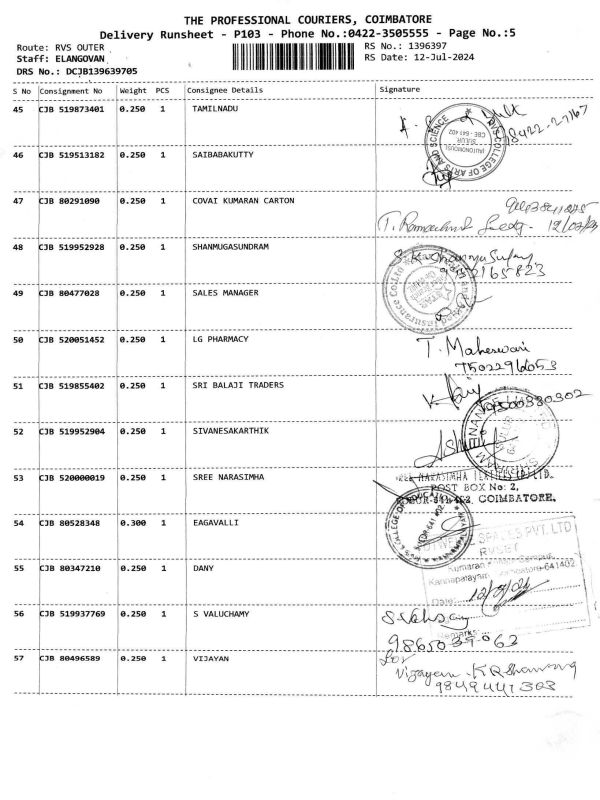 THE PROFESSIONAL COURIERS, COIMBATORE
Delivery Runsheet - P103 - Phone No.:0422-3505555 - Page No.:5
Route: RVS OUTER RS No.: 1396397
Staff: ELANGOVAN RS Date: 12-Jul-2024
DRS No.: DCJB139639705
S No Consignment No Weight PCS Consignee Details Signature
45 CJB 519873401 0.250 1 TAMILNADU
98422-27167
RVS COLLEGE OF ARTS AND SCIENCE
(AUTONOMOUS)
SULUR
CBE - 641 402
46 CJB 519513182 0.250 1 SAIBABAKUTTY
47 CJB 80291090 0.250 1 COVAI KUMARAN CARTON
48 CJB 519952928 0.250 1 SHANMUGASUNDRAM
49 CJB 80477028 0.250 1 SALES MANAGER
50 CJB 520051452 0.250 1 LG PHARMACY
T. Maheswari
7502296053
51 CJB 519855402 0.250 1 SRI BALAJI TRADERS
52 CJB 519952904 0.250 1 SIVANESAKARTHIK
53 CJB 520000019 0.250 1 SREE NARASIMHA
POST BOX No: 2,
COIMBATORE.
54 CJB 80528348 0.300 1 EAGAVALLI
RVS COLLEGE OF EDUCATION
SPACES PVT. LTD
55 CJB 80347210 0.250 1 DANY
Kumaran
Kannaparayam
641402
Date:
56 CJB 519937769 0.250 1 S VALUCHAMY
Remarks:
57 CJB 80496589 0.250 1 VIJAYAN
for
Vijayan
9849441303